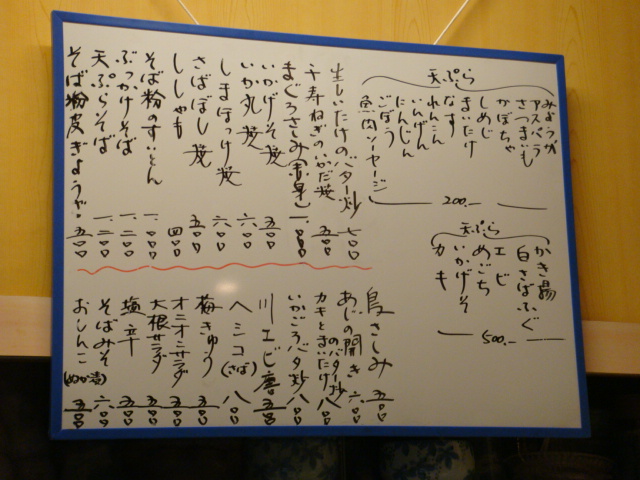 天ぷら
みょうが
アスパラ
さつまいも
かぼちゃ
しめじ
まいたけ
なす
れんこん
いんげん
にんじん
ごぼう
魚肉ソーセージ
200.-
天ぷら
かき揚
白さばふぐ
エビ
めごち
いかげそ
カキ
500.-
生しいたけのバター炒 七〇〇
千寿ねぎのいかだ焼 五〇〇
まぐろさしみ
いかげそ焼 五〇〇
いか丸焼 六〇〇
しまほっけ焼 六〇〇
さばぼし焼 五〇〇
ししゃも 四〇〇
そば粉のすいとん 一、〇〇〇
ぶっかけそば 一、二〇〇
天ぷらそば 一、二〇〇
そば粉皮ぎょうざ 五〇〇
鳥さしみ 五〇〇
あじの開き 六〇〇
カキとまいたけのバター炒 八〇〇
いかごろバタ炒 八〇〇
川エビ唐 五〇〇
ヘシコ(さば) 八〇〇
梅きゅう 五〇〇
オニオンサラダ 五〇〇
大根サラダ 五〇〇
塩辛 五〇〇
そばみそ 六〇〇
おしんこ(ぬか漬) 五〇〇